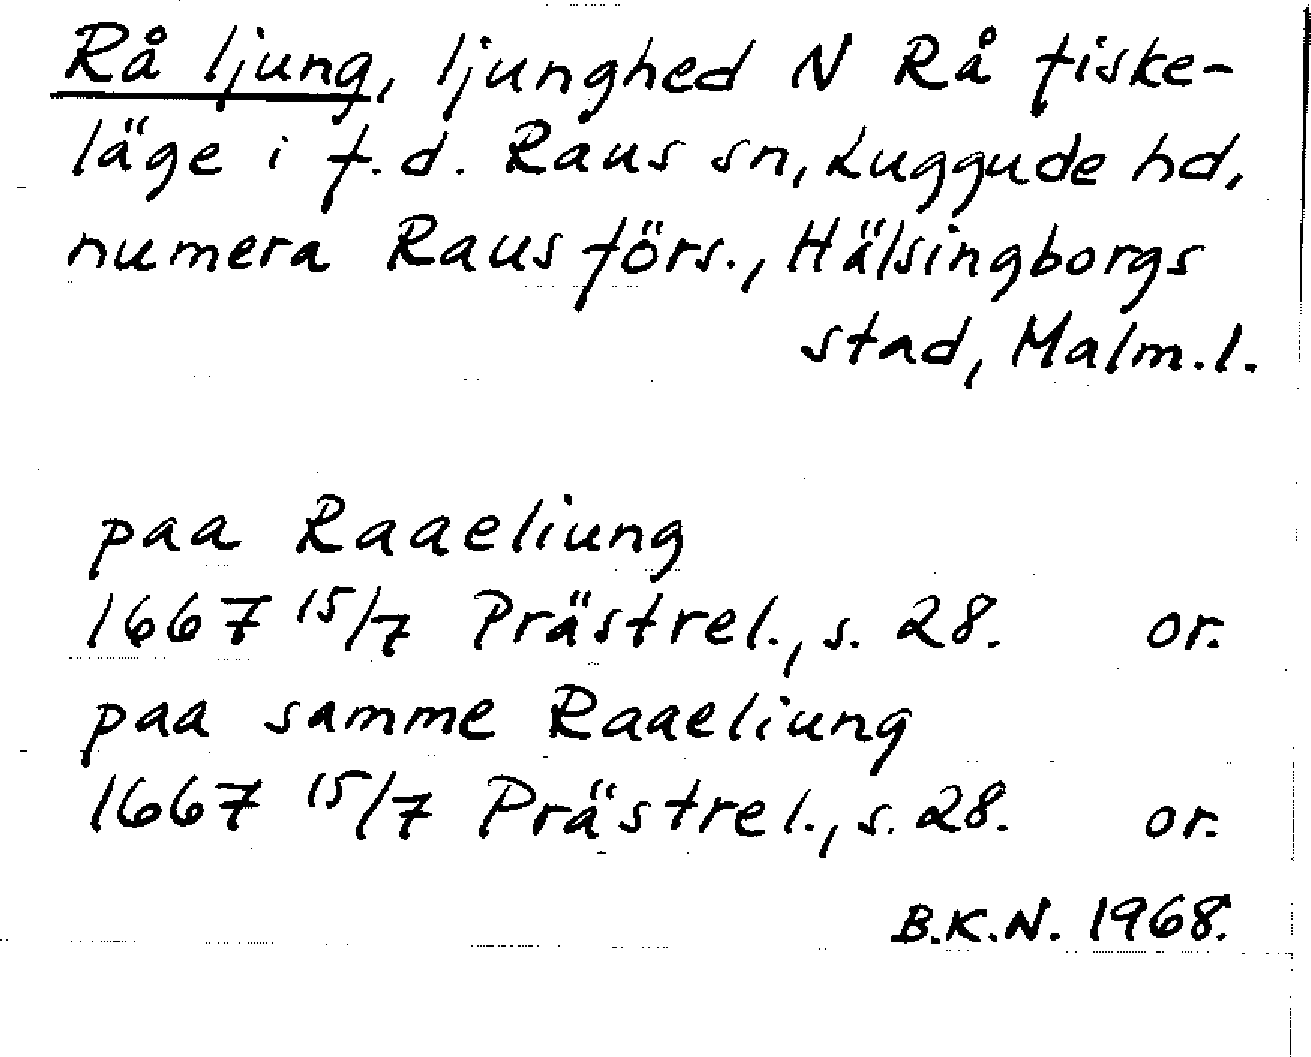 Rå ljung, ljunghed N Rå fiske-
läge i f.d. Raus sn, Luggude hd,
numera Raus förs., Hälsingborgs
stad, Malm.l.
paa Raaeliung
1667 15/7 Prästrel., s. 28. or.
paa samme Raaeliung
1667 15/7 Prästrel., s. 28. or.
B.K.N. 1968.